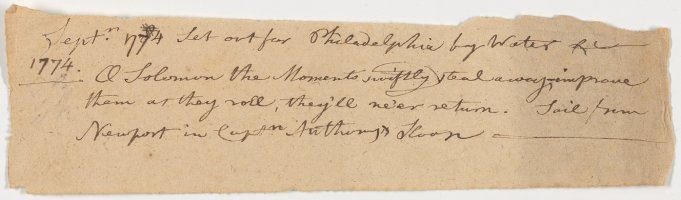 Septr. 1774 Set out for Philadelphia by Water &c
1774. O Solomon the Moments swiftly steal away, improve
them as they roll, they'll ne'er return. Sail from
Newport in Captn Anthonys Sloop